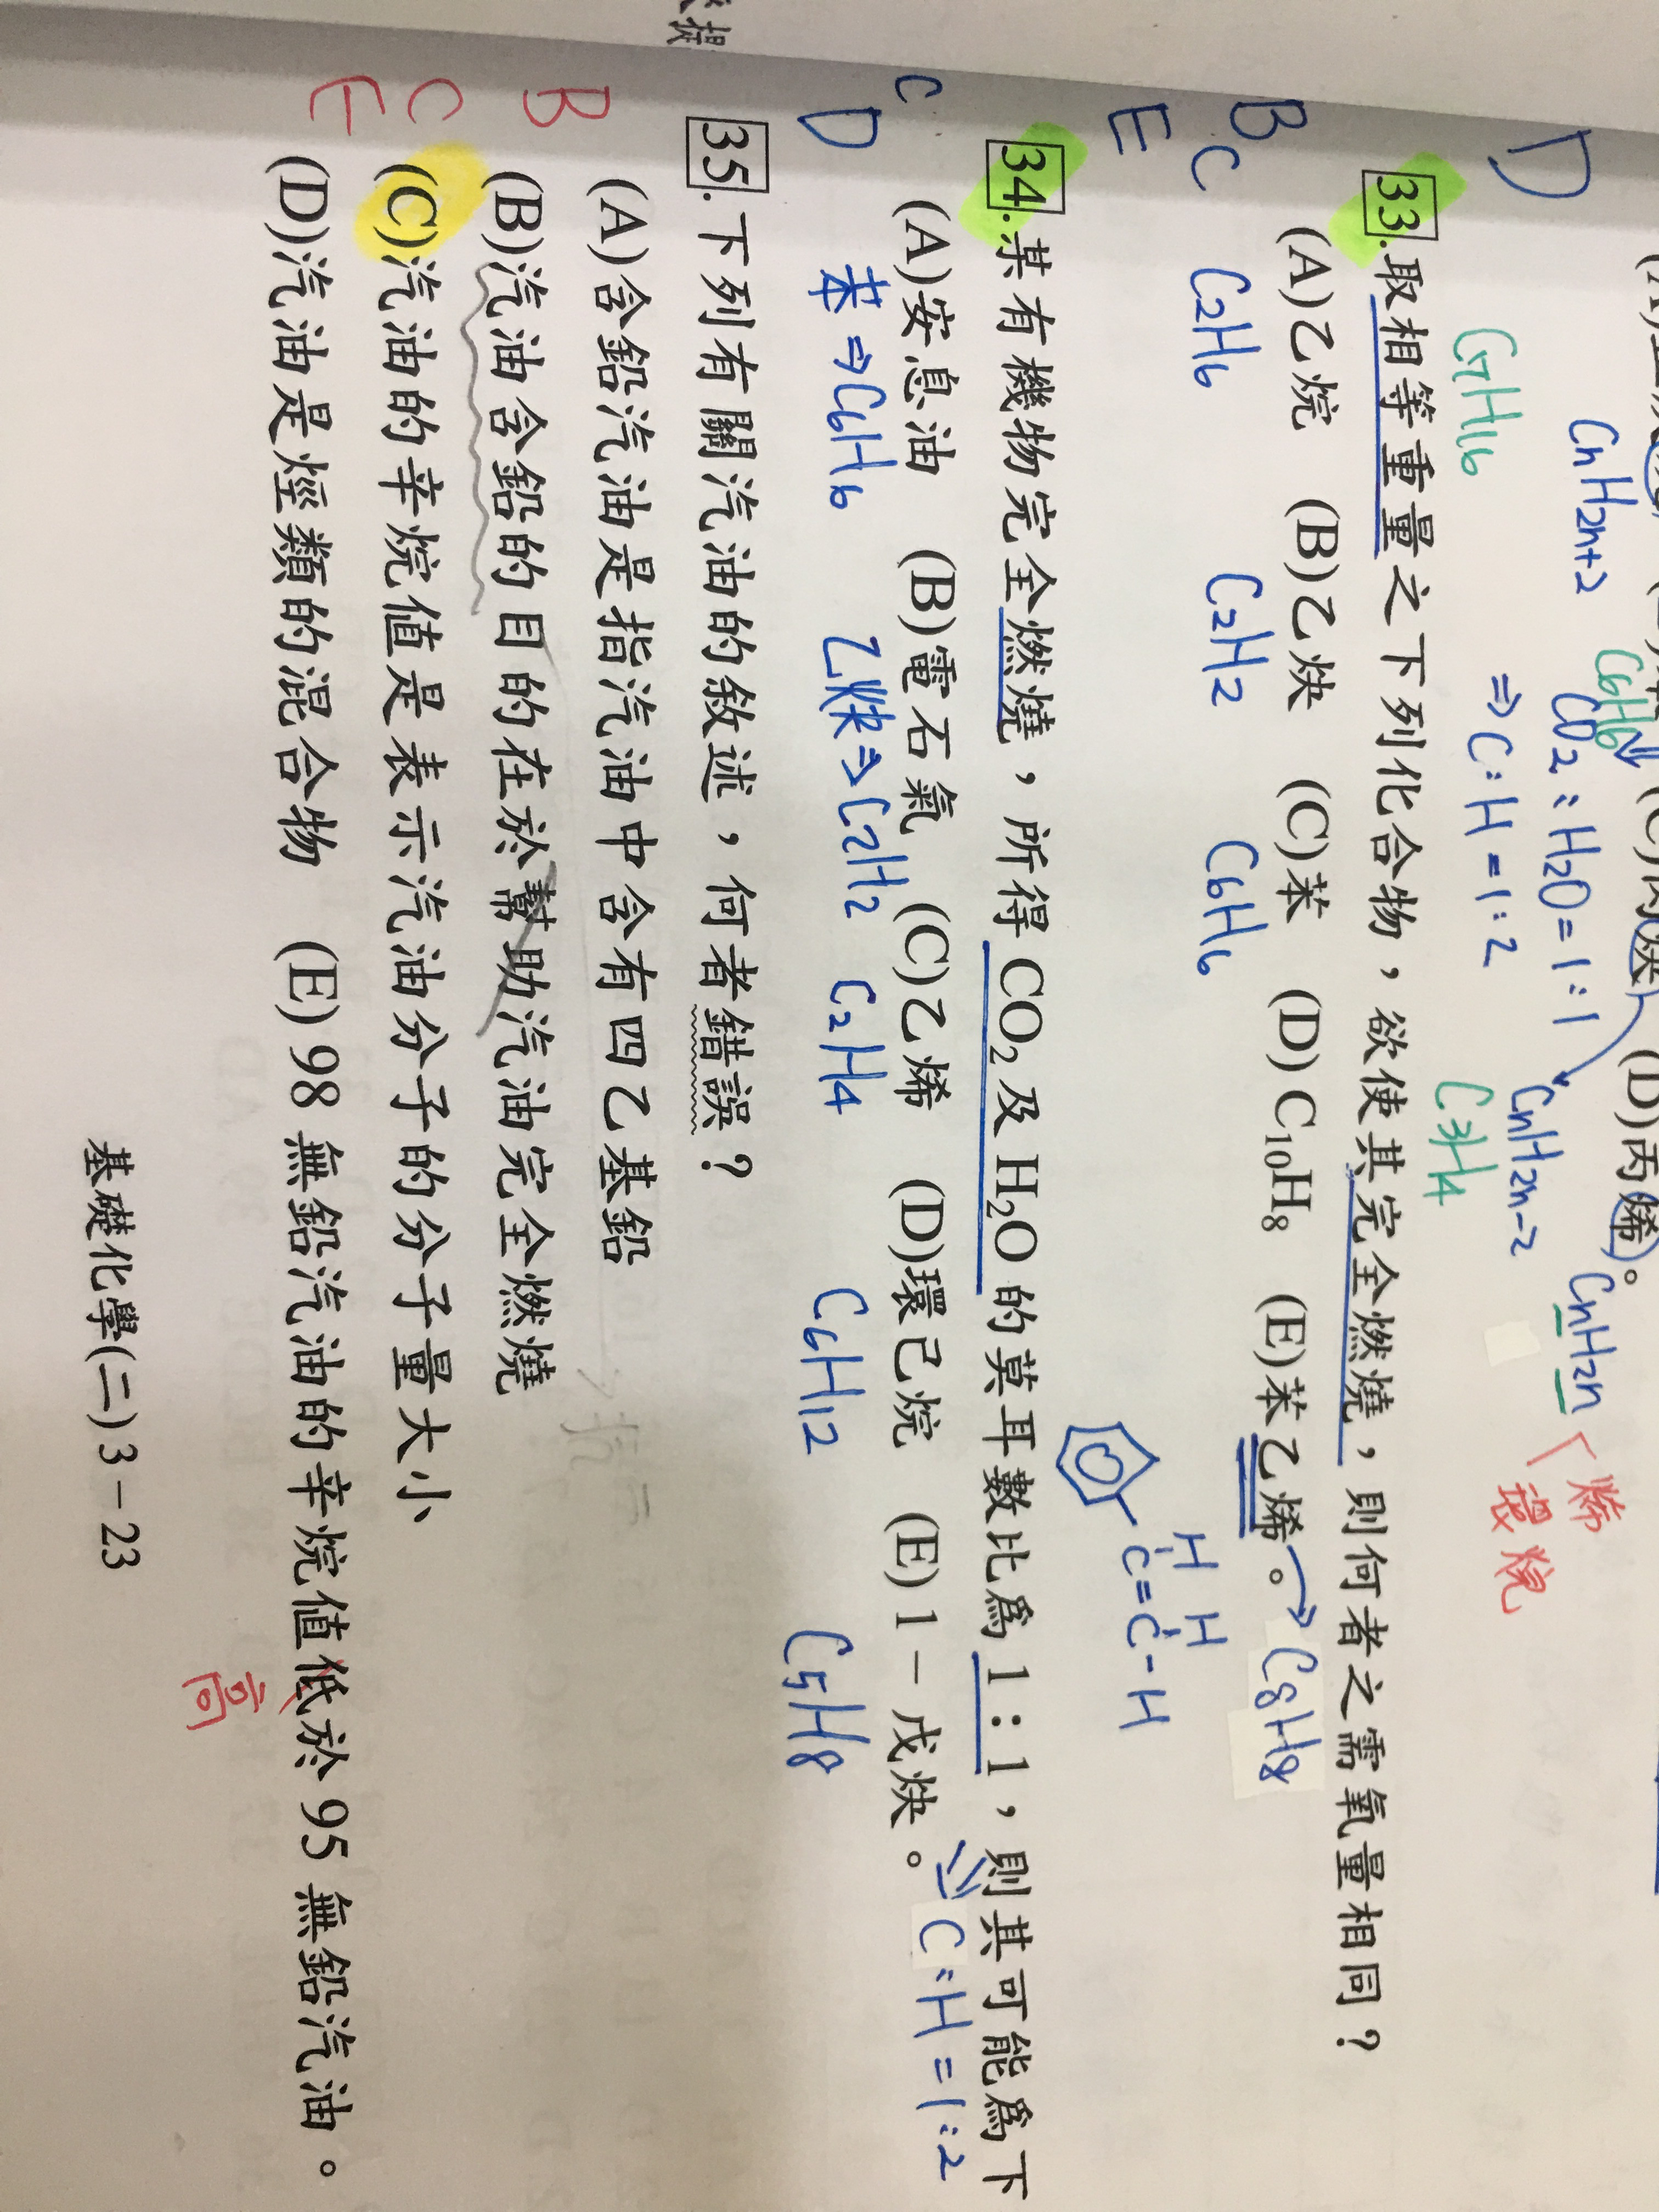 D CnH2n+2 C6H6 CO2:H2O=1:1 CnH2n-2 CnH2n 烯
C7H16 ⇒C:H=1:2 C3H4 環烷
(C)丙炔 (D)丙烯。
33.取相等重量之下列化合物，欲使其完全燃燒，則何者之需氧量相同？
BC (A)乙烷 (B)乙炔 (C)苯 (D)C10H8 (E)苯乙烯。→C8H8
E C2H6 C2H2 C6H6 H H
C=C-H
34.某有機物完全燃燒，所得CO2及H2O的莫耳數比為1:1，則其可能為下
C (A)安息油 (B)電石氣 (C)乙烯 (D)環己烷 (E)1-戊炔。 ⇒C:H=1:2
D 苯⇒C6H6 乙炔⇒C2H2 C2H4 C6H12 C5H8
35.下列有關汽油的敘述，何者錯誤？
(A)含鉛汽油是指汽油中含有四乙基鉛
B (B)汽油含鉛的目的在於幫助汽油完全燃燒
C (C)汽油的辛烷值是表示汽油分子的分子量大小
E (D)汽油是烴類的混合物 (E)98無鉛汽油的辛烷值低於95無鉛汽油。
高
基礎化學(二)3-23